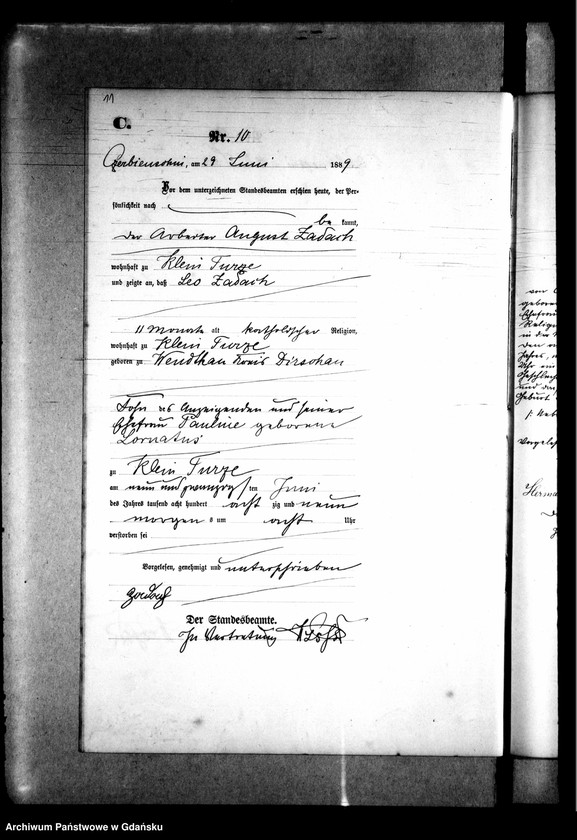 11
C.
Nr. 10
Czerbienschin, am 29 Juni 1889.
Vor dem unterzeichneten Standesbeamten erschien heute, der Per-
sönlichkeit nach
be kannt,
der Arbeiter August Zadach
wohnhaft zu Klein Turze
und zeigte an, daß Leo Zadach
11 Monate alt katholischer Religion,
wohnhaft zu Klein Turze
geboren zu Wendtkau Kreis Dirschau
Sohn des Anzeigenden und seiner
Ehefrau Pauline geborene
zu Klein Turze
am neun und zwanzigsten Juni
des Jahres tausend acht hundert acht zig und neun
morgens um acht Uhr
verstorben sei
Vorgelesen, genehmigt und unterschrieben
Der Standesbeamte.
In Vertretung
geboren
Ehefrau
Religion
in der
Jahres,
Uhr
Geschlecht
und
Vorgelesen
Archiwum Państwowe w Gdańsku